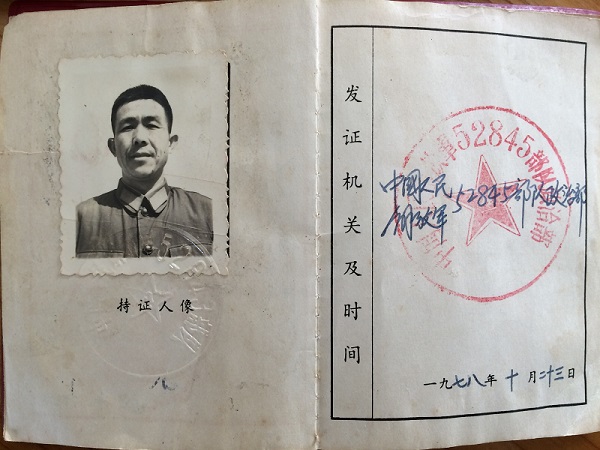 持证人像
发证机关及时间
军52845部队政治部
中国人民
解放军52845部队政治部
一九七八年十月二十三日